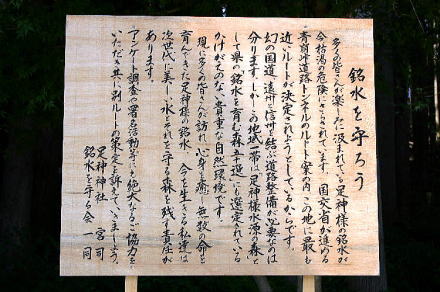 銘水を守ろう
多くの皆さんが楽しみに汲まれている足神様の銘水が
今枯渇の危険にさらされています。国交省が進める
青崩峠道路トンネルのルート案の内、この地に最も
近いルートが決定されようとしているからです。
幻の国道、遠州と信州を結ぶ道路整備が必要なのは
分ります。しかしこの地域一帯は「足神様水源の森」と
して県の「銘水を育む森五十選」にも選定されている、
かけがえのない貴重な自然環境です。
現に多くの皆さんが訪れ、心身を癒し、無数の命を
育んできた足神様の銘水、今を生きる私達は
次世代に美しい水とそれを守る森を残す責任が
あります。
アンケート調査や署名活動等にも絶大なるご協力を
いただき共に別ルートの策定を訴えていきましょう。
足神神社 宮司
銘水を守る会一同